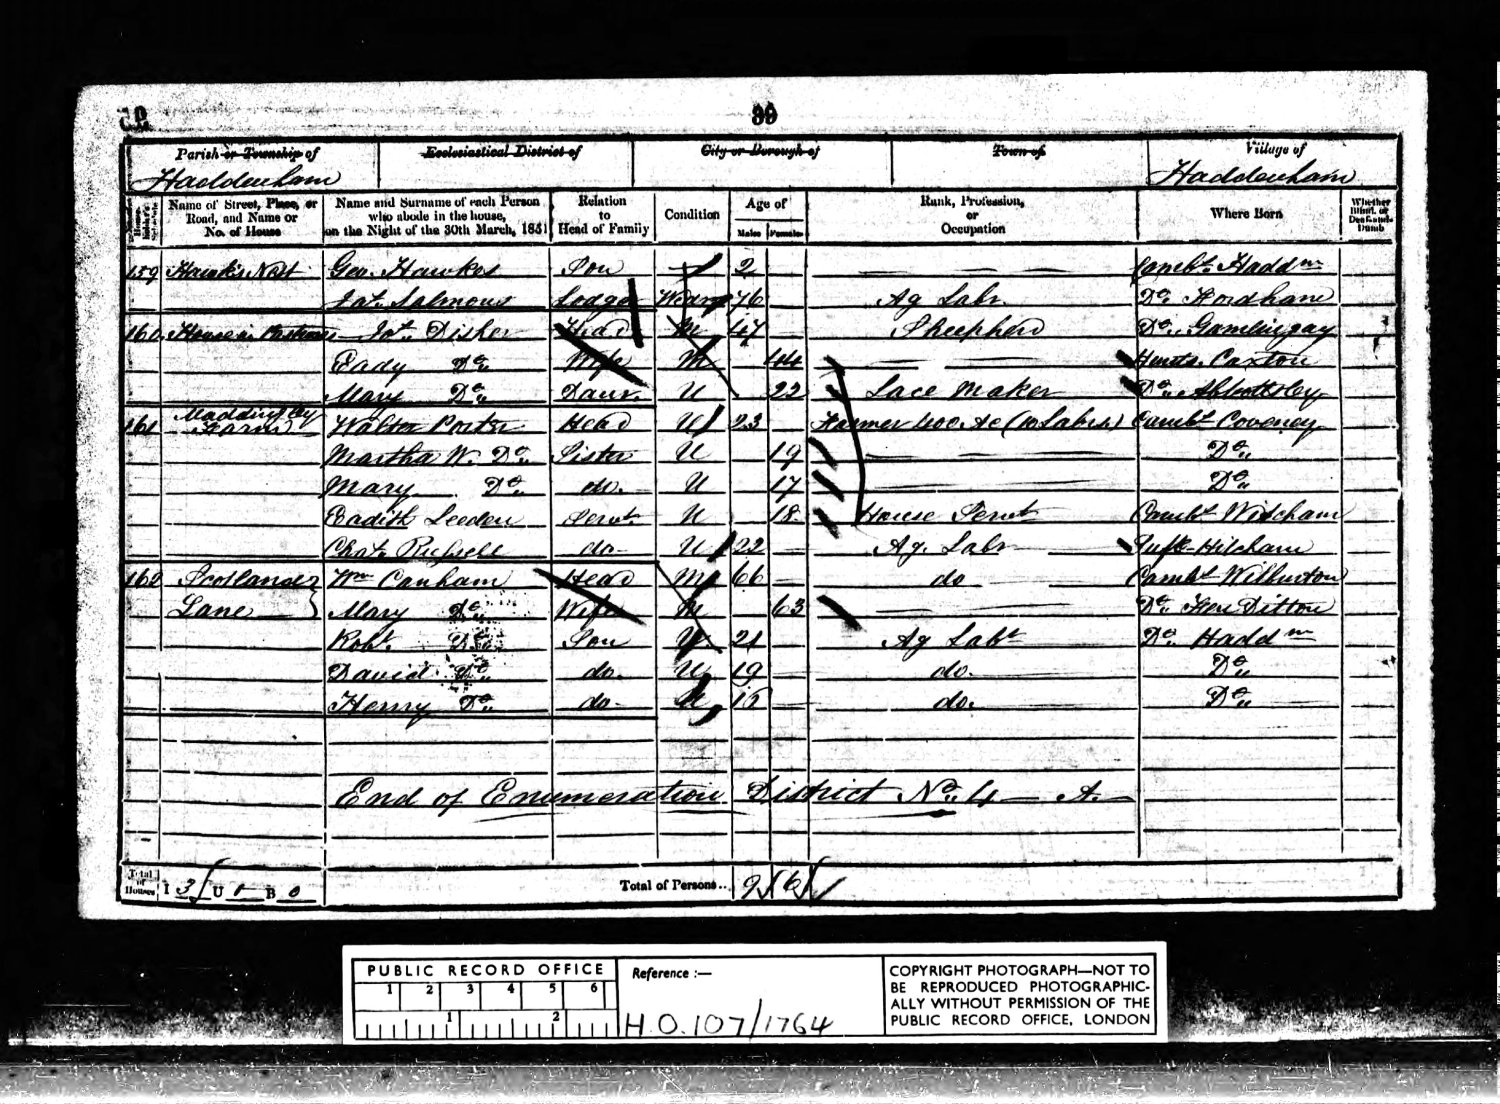 99
Parish or Township of Ecclesiastical District of City or Borough of Town of Village of
Haddenham Haddenham
Name of Street, Place, or Road, and Name or No. of House
Name and Surname of each Person who abode in the house, on the Night of the 30th March, 1851
Relation to Head of Family
Condition
Age of
Males Females
Rank, Profession, or Occupation
Where Born
Whether Blind, or Deaf-and-Dumb
159 Hawks Nest Geo. Hawkes Son 2 Cambs. Haddm
Jas. Salmons Lodger Widr 76 Ag Labr. Do. Fordham
160 House in Jas. Disher Head M 47 Shepherd Do. Gamlingay
Eady Do. Wife M 44 Hunts. Caxton
Mary Do. Daur. U 22 Lace Maker Do. Abbotsley
161 Maddingley Farm Walter Porter Head U 23 Farmer 400 Ac (10 Labrs) Cambs Coveney
Martha W. Do. Sister U 19 Do.
Mary Do. do. U 17 Do.
Eadith Leeden Servt. U 18 House Servt Cambs Witcham
Chas. Russell do U 22 Ag. Labr Suffk Hitcham
162 Scotlands Lane Wm Canham Head M 66 do Cambs Wilburton
Mary Do. Wife M 63 Do. Fen Ditton
Robt. Do. Son U 21 Ag Labr Do. Haddm
David Do. do. U 19 do. Do.
Henry Do. do U 16 do. Do.
End of Enumeration District No. 4 A.
Total of Houses I 3 U B 0 Total of Persons.. 9 6
PUBLIC RECORD OFFICE
1 2 3 4 5 6
1 2
Reference :—
H.O.107/1764
COPYRIGHT PHOTOGRAPH—NOT TO
BE REPRODUCED PHOTOGRAPHIC-
ALLY WITHOUT PERMISSION OF THE
PUBLIC RECORD OFFICE, LONDON